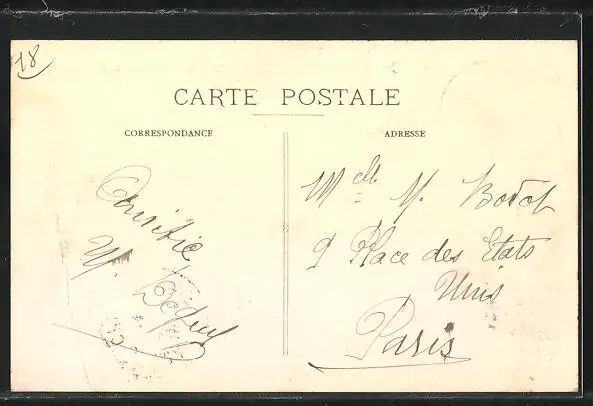 18
CARTE POSTALE
CORRESPONDANCE
ADRESSE
Amitié
M.
Melle M. Bodot
9 Place des Etats
Unis
Paris